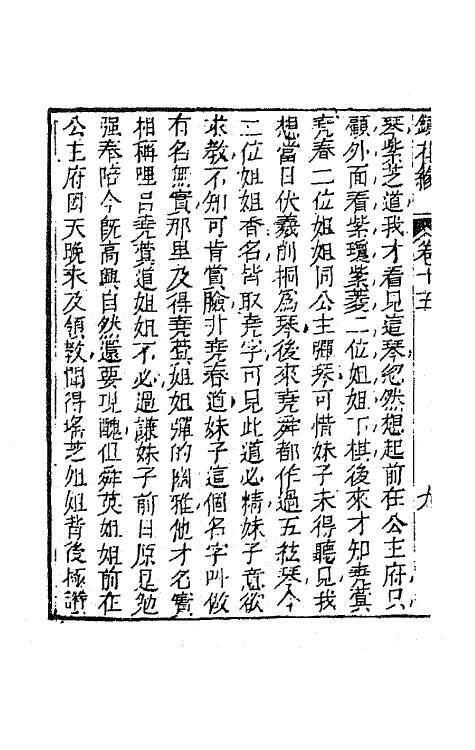 鏡花緣 卷十五 九
琴紫芝道我才看見這琴忽然想起前在公主府只
顧外面看紫瓊紫菱二位姐姐下棋後來才知堯蓂
堯春二位姐姐同公主彈琴可惜妹子未得聽見我
想當日伏羲削桐爲琴後來堯舜都作過五絃琴今
二位姐姐香名皆取堯字可見此道必精妹子意欲
求教不知可肯賞臉井堯春道妹子這個名字叫做
有名無實那里及得堯蓂姐姐彈的幽雅他才名實
相稱哩呂堯蓂道姐姐不必過謙妹子前日原是勉
强奉陪今旣高興自然還要現醜但舜英姐姐前在
公主府因天晚未及領教聞得瑤芝姐姐背後極讚